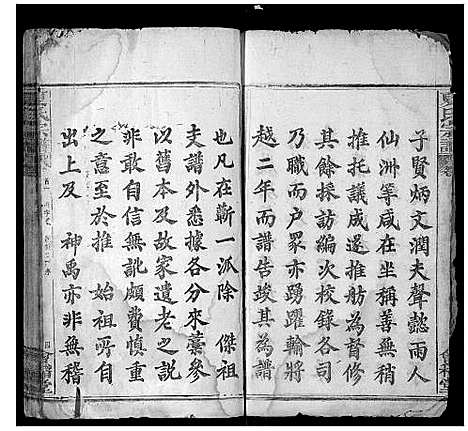 子賢炳文潤夫聲懿雨人
仙洲等咸在坐稱善無稍
推托議成遂推舫為督修
其餘採訪編次校錄各司
乃職而户眾亦踴躍輸將
越二年而譜告竣其為譜
也凡在蘄一派除 傑祖
夫譜外悉據各分來藁參
以舊本及故家遺老之説
非敢自信無訛頗費慎重
之意至於推 始祖所自
出上及 神禹亦非無稽
會稽堂